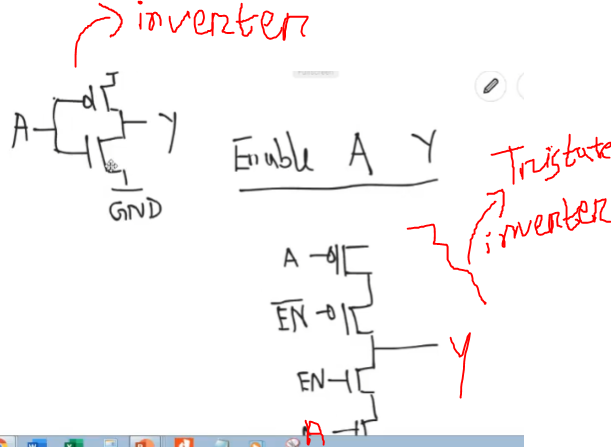 inverter
A
Y
GND
Enable A Y
Tristate
inverter
A
E̅N̅
Y
EN
A